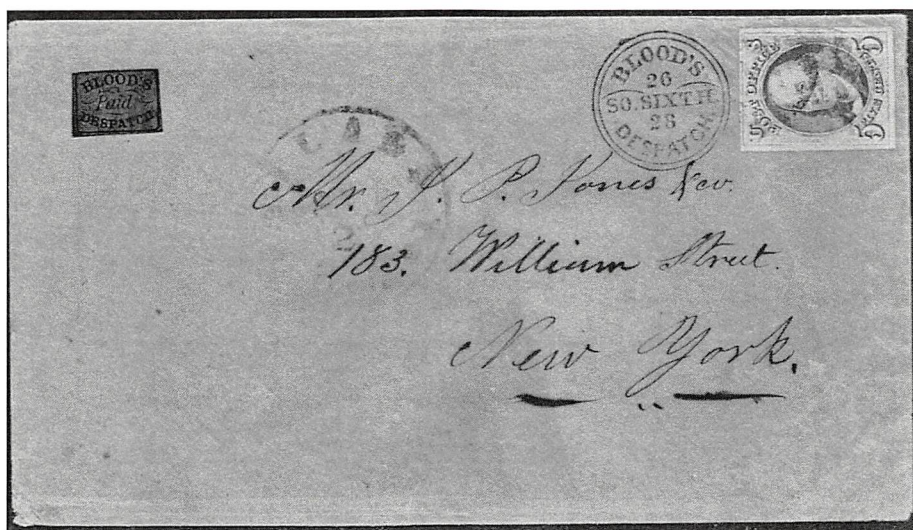 BLOOD'S
Paid
DESPATCH
BLOOD'S
26
SO. SIXTH
28
DESPATCH
POST OFFICE
Mr. J. P. Jones & co.
183. William Street.
New York.